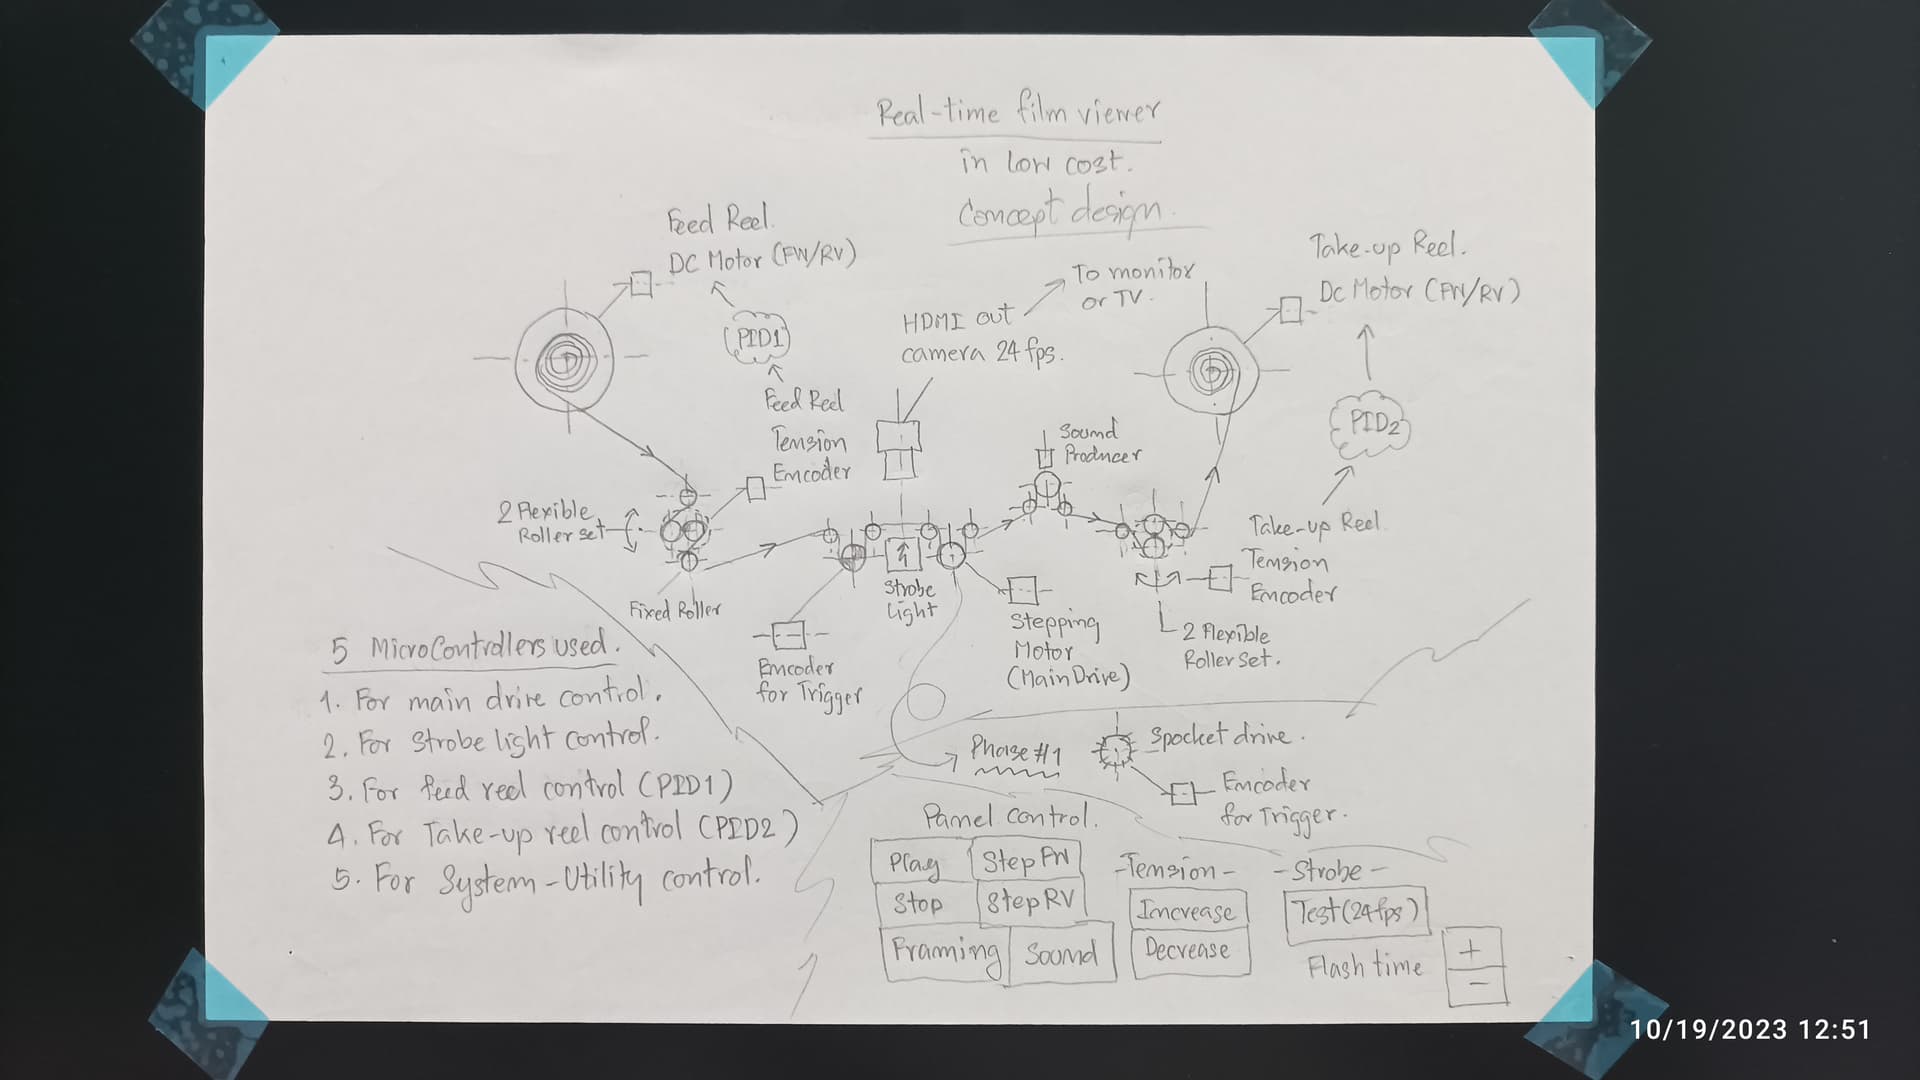 Real-time film viewer
in low cost.
Concept design.
Feed Reel.
DC Motor (FW/RV)
PID1
Feed Reel
Tension
Encoder
2 Flexible
Roller set
Fixed Roller
HDMI out
camera 24 fps.
To monitor
or TV.
Take-up Reel.
DC Motor (FW/RV)
PID2
Take-up Reel
Tension
Encoder
2 Flexible
Roller set.
Sound
Producer
Strobe
light
Encoder
for Trigger
Stepping
Motor
(Main Drive)
5 MicroControllers used.
1. For main drive control.
2. For strobe light control.
3. For feed reel control (PID1)
4. For Take-up reel control (PID2)
5. For System-Utility control.
Phase #1
Spocket drive.
Encoder
for Trigger.
Panel control.
Play
Step FW
Stop
Step RV
Framing
Sound
-Tension-
Increase
Decrease
-Strobe-
Test (24fps)
Flash time
+
-
10/19/2023 12:51